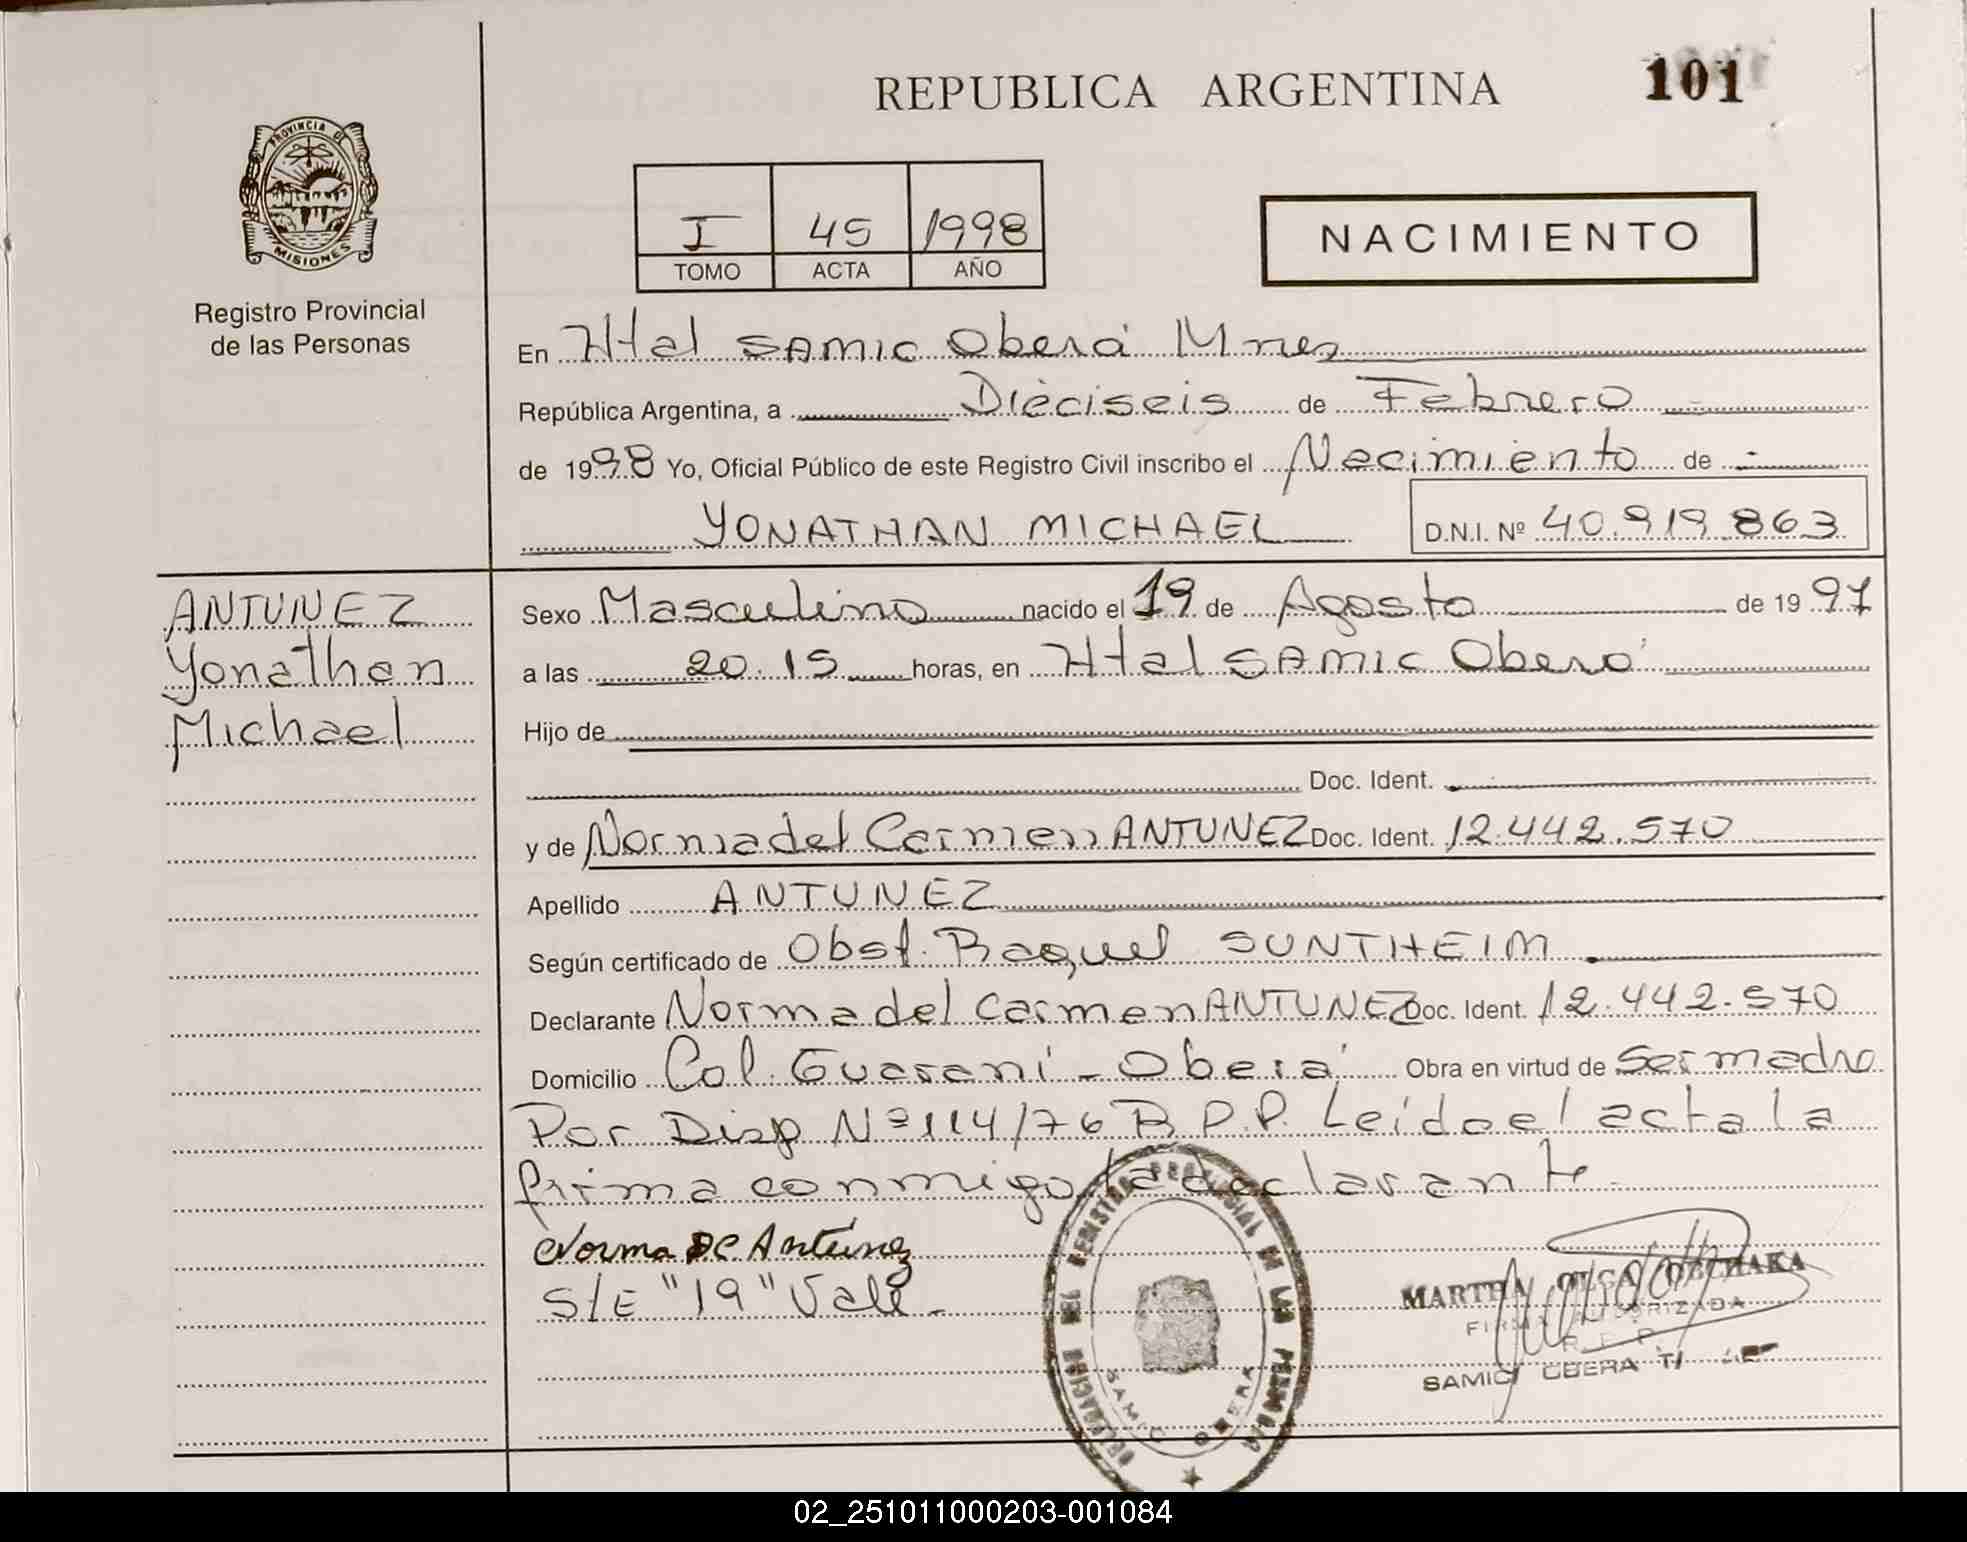 REPUBLICA ARGENTINA
101
PROVINCIA DE
MISIONES
Registro Provincial
de las Personas
I 45 1998
TOMO ACTA AÑO
NACIMIENTO
En Htal SAMIC Oberá Mnes
República Argentina, a Dieciseis de Febrero
de 1998 Yo, Oficial Público de este Registro Civil inscribo el Nacimiento de
YONATHAN MICHAEL D.N.I. Nº 40.919.863
ANTUNEZ
Yonathan
Michael
Sexo Masculino nacido el 19 de Agosto de 1997
a las 20.15 horas, en Htal SAMIC Oberá
Hijo de
Doc. Ident.
y de Norma del Carmen ANTUNEZ Doc. Ident. 12.442.570
Apellido ANTUNEZ
Según certificado de Obst. Raquel SUNTHEIM
Declarante Norma del Carmen ANTUNEZ Doc. Ident. 12.442.570
Domicilio Col. Guaraní - Oberá Obra en virtud de Ser madre
Por Disp Nº 114/76 R.P.P. Leído el acta la
firma conmigo la declarante
Norma DC Antunez
S/E "19" Vale
DELEGACION DEL REGISTRO PROVINCIAL DE LAS PERSONAS
SAMIC OBERA
MARTHA OLGA
FIRMA AUTORIZADA
R. P. P.
SAMIC OBERA
02_251011000203-001084